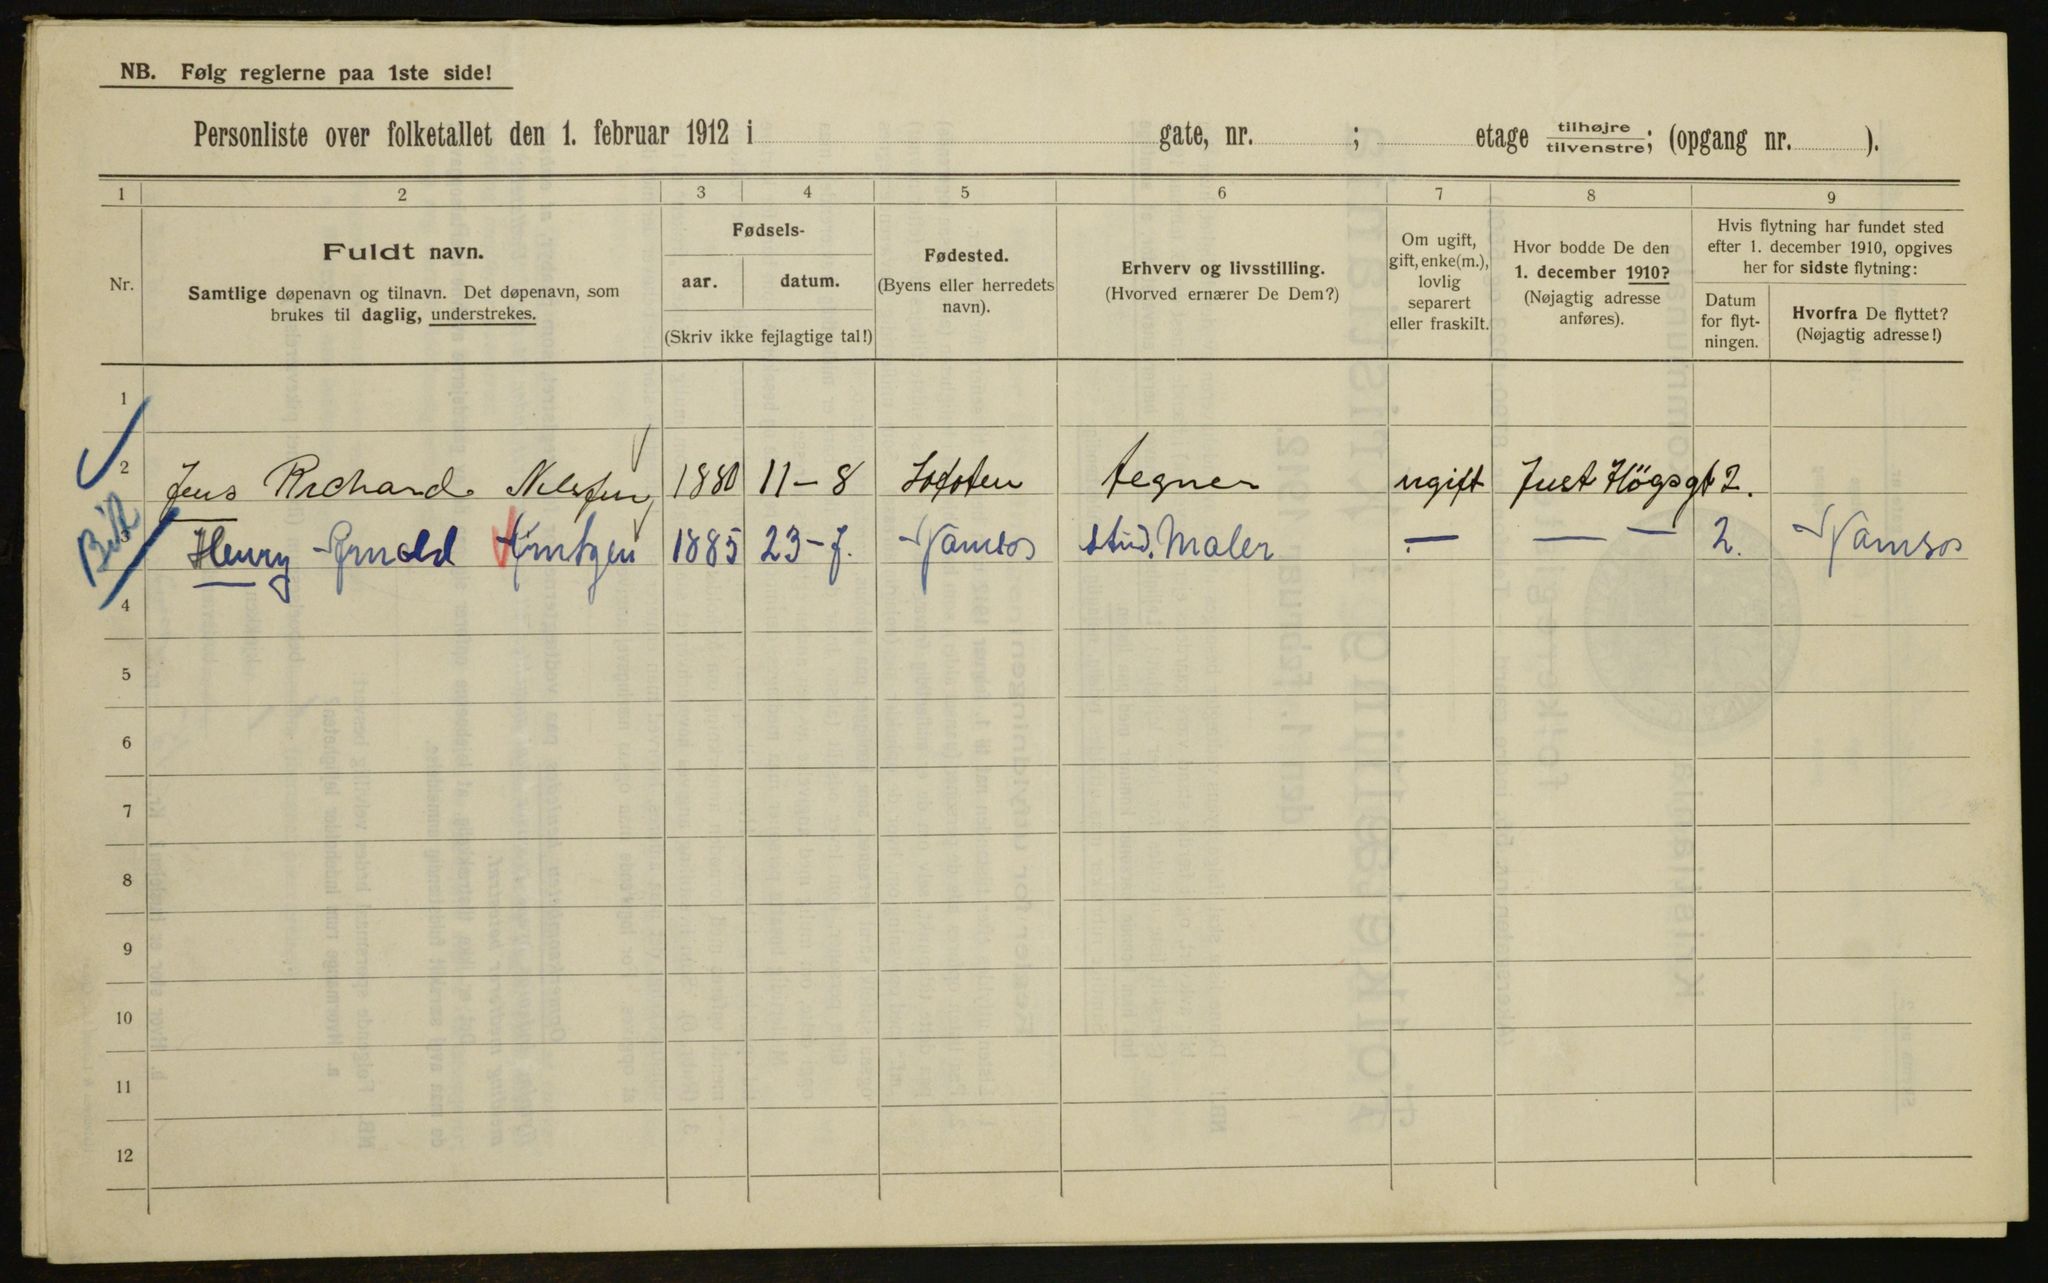 NB. Følg reglerne paa 1ste side!
Personliste over folketallet den 1. februar 1912 i gate, nr. ; etage tilhøjre tilvenstre; (opgang nr. ).
1 2 3 4 5 6 7 8 9
Nr.
Fuldt navn.
Samtlige døpenavn og tilnavn. Det døpenavn, som
brukes til daglig, understrekes.
Fødsels-
aar. datum.
(Skriv ikke fejlagtige tal!)
Fødested.
(Byens eller herredets
navn).
Erhverv og livsstilling.
(Hvorved ernærer De Dem?)
Om ugift,
gift, enke(m.),
lovlig
separert
eller fraskilt.
Hvor bodde De den
1. december 1910?
(Nøjagtig adresse
anføres).
Hvis flytning har fundet sted
efter 1. december 1910, opgives
her for sidste flytning:
Datum
for flyt-
ningen.
Hvorfra De flyttet?
(Nøjagtig adresse!)
1
2 Jens Richard 1880 11-8 Lofoten tegner ugift Just Högsgt 2.
3 Henry 1885 23- Namsos stud. Maler — — — 2. Namsos
4
5
6
7
8
9
10
11
12